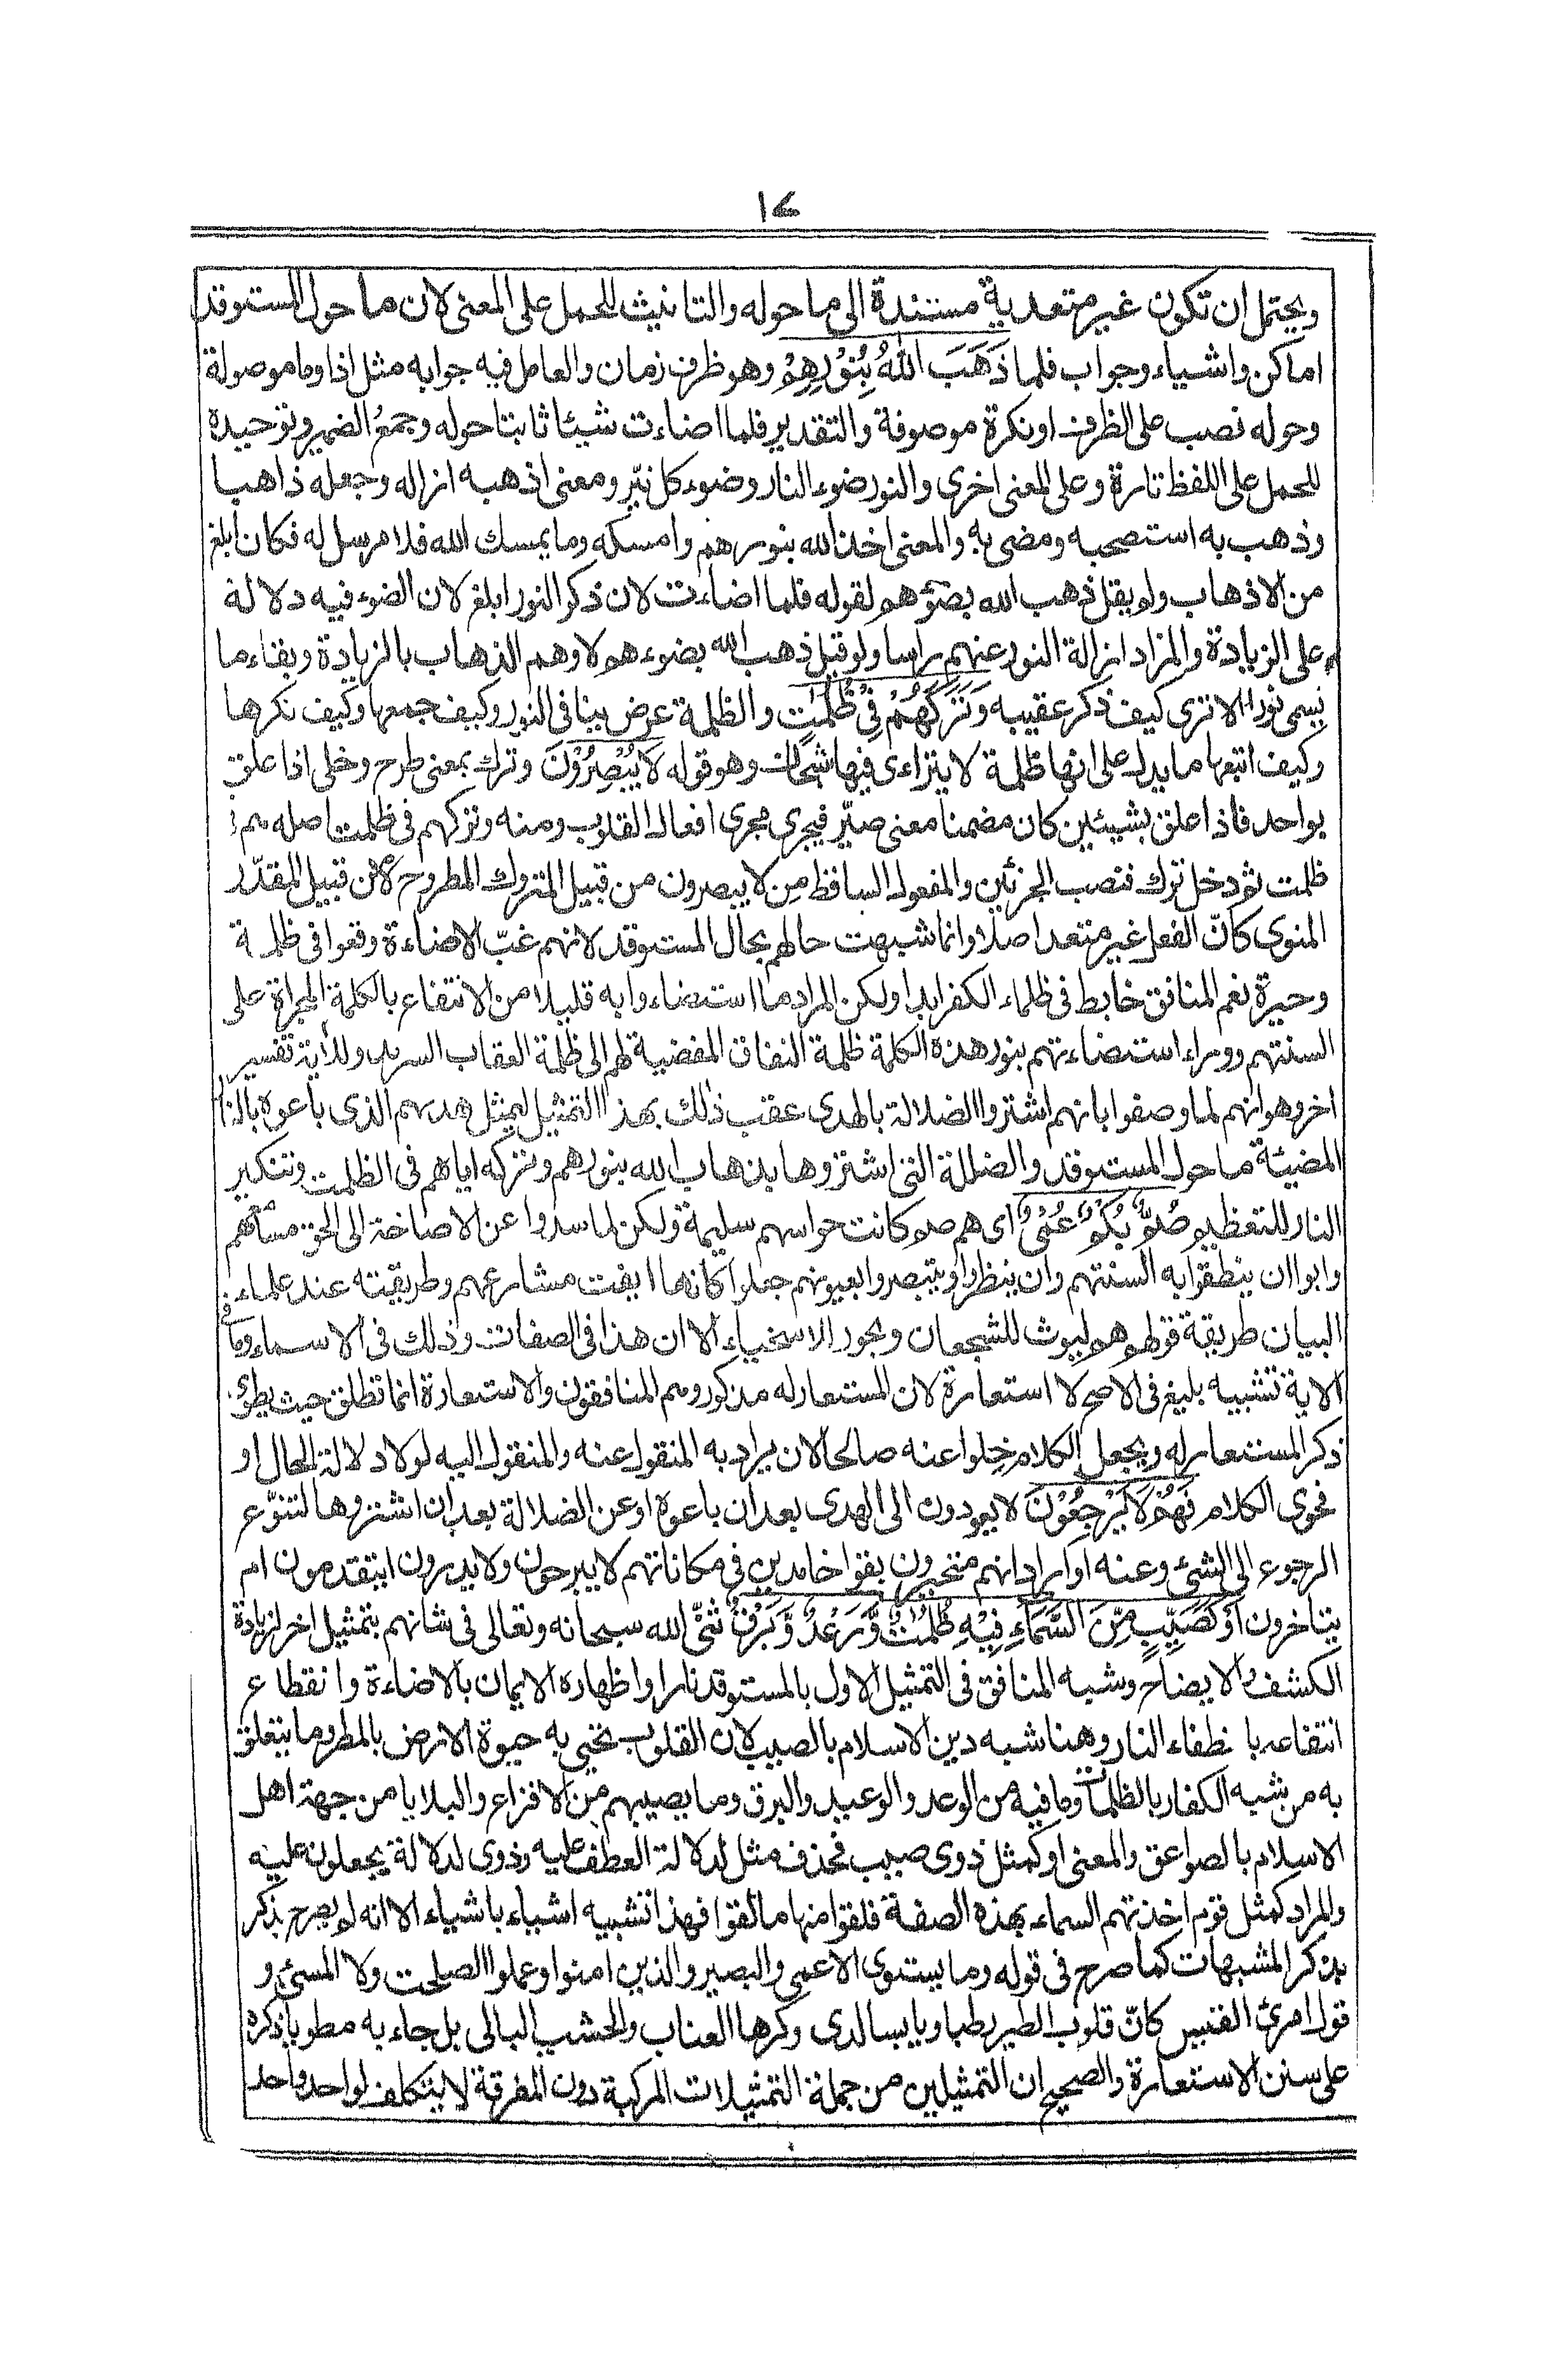 ١٤
ويحتمل ان تكون غير متعدية مستندة الى ما حوله والتانيث للحمل على المعنى لان ما حول المستوقد
اماكن واشياء وجواب فلما ذَهَبَ اللّٰهُ بِنُوْرِهِمْ وهو ظرف زمان والعامل فيه جوابه مثل اذا وما موصولة
وحوله نصب على الظرف او نكرة موصوفة والتقدير فلما اضاءت شيئا ثابتا حوله وجمع الضمير وتوحيده
للحمل على اللفظ تارة وعلى المعنى اخرى والنور ضوء النار وضوء كل نيّر ومعنى اذهبه ازاله وجعله ذاهبا
وذهب به استصحبه ومضى به والمعنى اخذ الله بنورهم وامسكه وما يمسك الله فلا مرسل له فكان ابلغ
من الاذهاب ولم يقل ذهب الله بضوءهم لقوله فلما اضاءت لان ذكر النور ابلغ لان الضوء فيه دلالة
على الزيادة والمراد ازالة النور عنهم راسا ولو قيل ذهب الله بضوءهم لاوهم الذهاب بالزيادة وبقاء ما
يسمى نورا الا ترى كيف ذكر عقيبه وَتَرَكَهُمْ فِيْ ظُلُمٰتٍ والظلمة عرض ينافى النور وكيف جمعها وكيف نكرها
وكيف اتبعها ما يدل على انها ظلمة لا يتراءى فيها شبحان وهو قوله لَا يُبْصِرُوْنَ وترك بمعنى طرح وخلى اذا علق
بواحد فاذا علق بشيئين كان مضمنا معنى صيّر فيجرى مجرى افعال القلوب ومنه وتركهم فى ظلمت اصله هم فى
ظلمت ثم دخل ترك فنصب الجزئين والمفعول الساقط من لا يبصرون من قبيل المتروك المطروح لا من قبيل المقدّر
المنوى كانّ الفعل غير متعد اصلا وانما شبهت حالهم بحال المستوقد لانهم غبّ الاضاءة وقعوا فى ظلمة
وحيرة نعم المنافق خابط فى ظلماء الكفر ابدا ولكن المراد ما استضاءوا به قليلا من الانتفاع بالكلمة المجراة على
السنتهم ووراء استضاءتهم بنور هذه الكلمة ظلمة النفاق المفضية لهم الى ظلمة العقاب السرمد وللاية تفسير
اخر وهو انهم لما وصفوا بانهم اشتروا الضلالة بالهدى عقب ذلك بهذا التمثيل ليمثل هدىهم الذى باعوه بالنار
المضيئة ما حول المستوقد والضلالة التى اشتروها بذهاب الله بنورهم وتركه اياهم فى الظلمت وتنكير
النار للتعظيم صُمٌّ بُكْمٌ عُمْيٌ اى هم صم كانت حواسهم سليمة ولكن لما سدوا عن الاصاخة الى الحق مسامعهم
وابوا ان ينطقوا به السنتهم وان ينظروا ويتبصروا بعيونهم جعلوا كانما ايفت مشاعرهم وطريقته عند علماء
البيان طريقة قولهم هم ليوث للشجعان وبحور للاسخياء الا ان هذا فى الصفات وذلك فى الاسماء وما فى
الاية تشبيه بليغ فى الاصح لا استعارة لان المستعار له مذكور وهم المنافقون والاستعارة انما تطلق حيث يطوى
ذكر المستعار له ويجعل الكلام خلوا عنه صالحا لان يراد به المنقول عنه والمنقول اليه لولا دلالة الحال او
فحوى الكلام فَهُمْ لَا يَرْجِعُوْنَ لا يعودون الى الهدى بعد ان باعوه او عن الضلالة بعد ان اشتروها لتنوّع
الرجوع الى الشئ وعنه او اراد انهم متحيرون بقوا خامدين فى مكاناتهم لا يبرحون ولا يدرون ايتقدمون ام
يتاخرون اَوْ كَصَيِّبٍ مِّنَ السَّمَآءِ فِيْهِ ظُلُمٰتٌ وَّرَعْدٌ وَّبَرْقٌ ثنّى الله سبحانه وتعالى فى شانهم بتمثيل اخر لزيادة
الكشف والايضاح وشبه المنافق فى التمثيل الاول بالمستوقد نارا واظهاره الايمان بالاضاءة وانقطاع
انتفاعه بانطفاء النار وهنا شبه دين الاسلام بالصيب لان القلوب تحيى به حيوة الارض بالمطر وما يتعلق
به من شبه الكفار بالظلمات وما فيه من الوعد والوعيد والبرق وما يصيبهم من الافزاع والبلايا من جهة اهل
الاسلام بالصواعق والمعنى او كمثل ذوى صيب فحذف مثل لدلالة العطف عليه وذوى لدلالة يجعلون عليه
والمراد كمثل قوم اخذتهم السماء بهذه الصفة فلقوا منها ما لقوا فهذا تشبيه اشياء باشياء الا انه لم يصرح بذكر
بذكر المشبهات كما صرح فى قوله وما يستوى الاعمى والبصير والذين امنوا وعملوا الصلحت ولا المسئ و
قول امرئ القيس كانّ قلوب الطير رطبا ويابسا لدى وكرها العناب والحشب البالى بل جاء به مطويا ذكره
على سنن الاستعارة والصحيح ان التمثيلين من جملة التمثيلات المركبة دون المفرقة لا يتكلف لواحد واحد